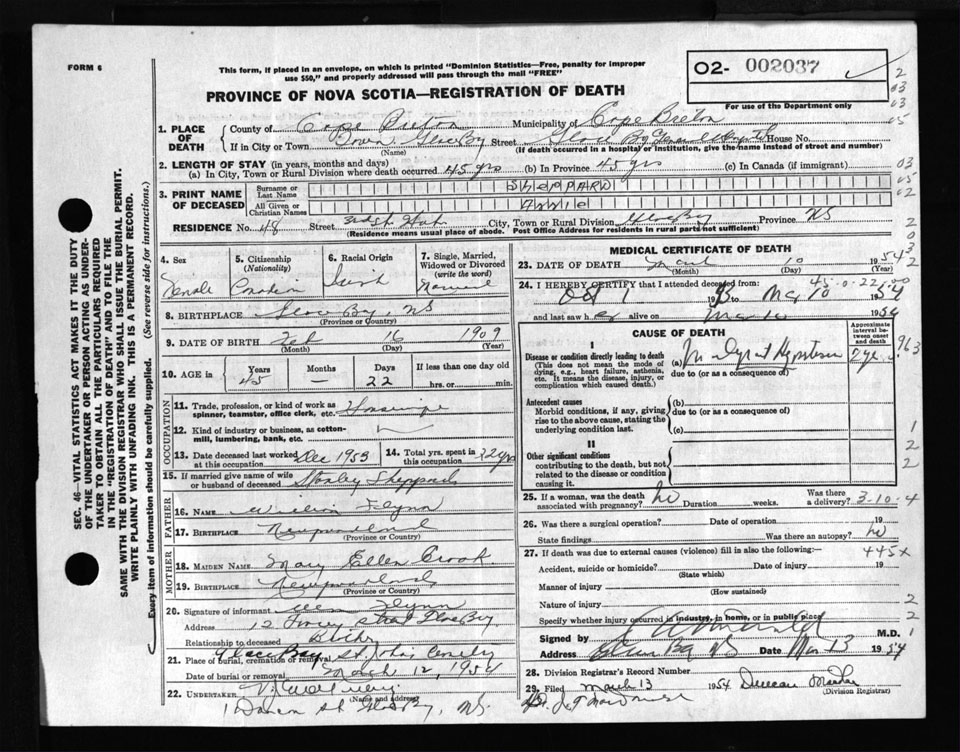 FORM 6
This form, if placed in an envelope, on which is printed "Dominion Statistics—Free, penalty for improper
use $50," and properly addressed will pass through the mail "FREE"
O2- 002037
For use of the Department only
PROVINCE OF NOVA SCOTIA—REGISTRATION OF DEATH
1. PLACE OF DEATH
County of Cape Breton Municipality of Cape Breton
If in City or Town Town Glace Bay Street Glace Bay General Hospital House No.
(Name) (If death occurred in a hospital or institution, give the name instead of street and number)
2. LENGTH OF STAY (in years, months and days)
(a) In City, Town or Rural Division where death occurred 45 yrs (b) In Province 45 yrs (c) In Canada (if immigrant)
3. PRINT NAME OF DECEASED
Surname or Last Name SHEPPARD
All Given or Christian Names Annie
RESIDENCE No. 48 Street City, Town or Rural Division Glace Bay Province NS
(Residence means usual place of abode. Post Office Address for residents in rural parts not sufficient)
4. Sex Female
5. Citizenship (Nationality) Canadian
6. Racial Origin Irish
7. Single, Married, Widowed or Divorced (write the word) Married
8. BIRTHPLACE Glace Bay, NS
(Province or Country)
9. DATE OF BIRTH Feb 16 1909
(Month) (Day) (Year)
10. AGE in Years 45 Months — Days 22 If less than one day old
hrs. or min.
OCCUPATION
11. Trade, profession, or kind of work as spinner, teamster, office clerk, etc. Housewife
12. Kind of industry or business, as cotton-mill, lumbering, bank, etc.
13. Date deceased last worked at this occupation Dec 1953
14. Total yrs. spent in this occupation 22 yrs
15. If married give name of wife or husband of deceased Stanley Sheppard
FATHER
16. NAME William Flynn
17. BIRTHPLACE Newfoundland
(Province or Country)
MOTHER
18. MAIDEN NAME Mary Ellen Crook
19. BIRTHPLACE Newfoundland
(Province or Country)
20. Signature of informant Flynn
Address 12 Street Glace Bay
Relationship to deceased
21. Place of burial, cremation or removal Glace Bay St. John's Cemetery
Date of burial or removal March 12, 1954
22. UNDERTAKER
(Name and address)
St Glace Bay, NS.
MEDICAL CERTIFICATE OF DEATH
23. DATE OF DEATH March 10 1954
(Month) (Day) (Year)
24. I HEREBY CERTIFY that I attended deceased from: 45-0-22
Oct 1 1953 to Mar 10 1954
and last saw her alive on 1954
CAUSE OF DEATH
Approximate interval between onset and death
I
Disease or condition directly leading to death
(This does not mean the mode of dying, e.g., heart failure, asthenia, etc. It means the disease, injury, or complication which caused death.)
(a) Malignant Hypertension
due to (or as a consequence of)
Antecedent causes
Morbid conditions, if any, giving rise to the above cause, stating the underlying condition last.
(b)
due to (or as a consequence of)
(c)
II
Other significant conditions
contributing to the death, but not related to the disease or condition causing it.
25. If a woman, was the death associated with pregnancy? No Duration weeks. Was there a delivery? 3-10-4
26. Was there a surgical operation? Date of operation 19
State findings Was there an autopsy? No
27. If death was due to external causes (violence) fill in also the following:— 445x
Accident, suicide or homicide? Date of injury 19
(State which)
Manner of injury
(How sustained)
Nature of injury
Specify whether injury occurred in industry, in home, or in public place
Signed by M.D.
Address Glace Bay NS Date Mar 13 1954
28. Division Registrar's Record Number
29. Filed March 13 1954 Duncan
(Division Registrar)
SEC. 46—VITAL STATISTICS ACT MAKES IT THE DUTY
OF THE UNDERTAKER OR PERSON ACTING AS UNDER-
TAKER TO OBTAIN ALL THE PARTICULARS REQUIRED
IN THE "REGISTRATION OF DEATH" AND TO FILE THE
SAME WITH THE DIVISION REGISTRAR WHO SHALL ISSUE THE BURIAL PERMIT.
WRITE PLAINLY WITH UNFADING INK. THIS IS A PERMANENT RECORD.
Every item of information should be carefully supplied. (See reverse side for instructions.)